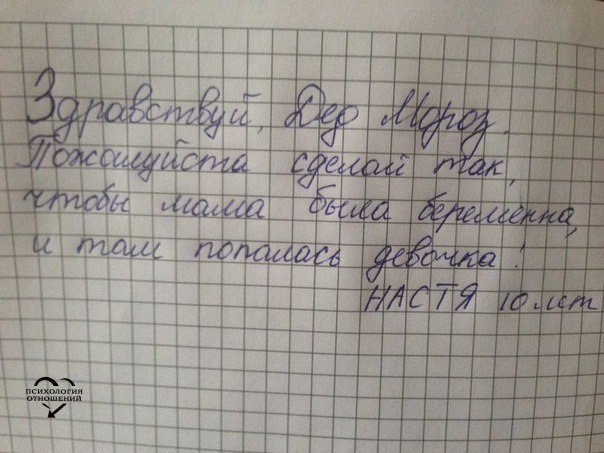 Здравствуй, Дед Мороз.
Пожалуйста сделай так,
чтобы мама была беременна,
и там попалась девочка!
НАСТЯ 10 лет
ПСИХОЛОГИЯ
ОТНОШЕНИЙ